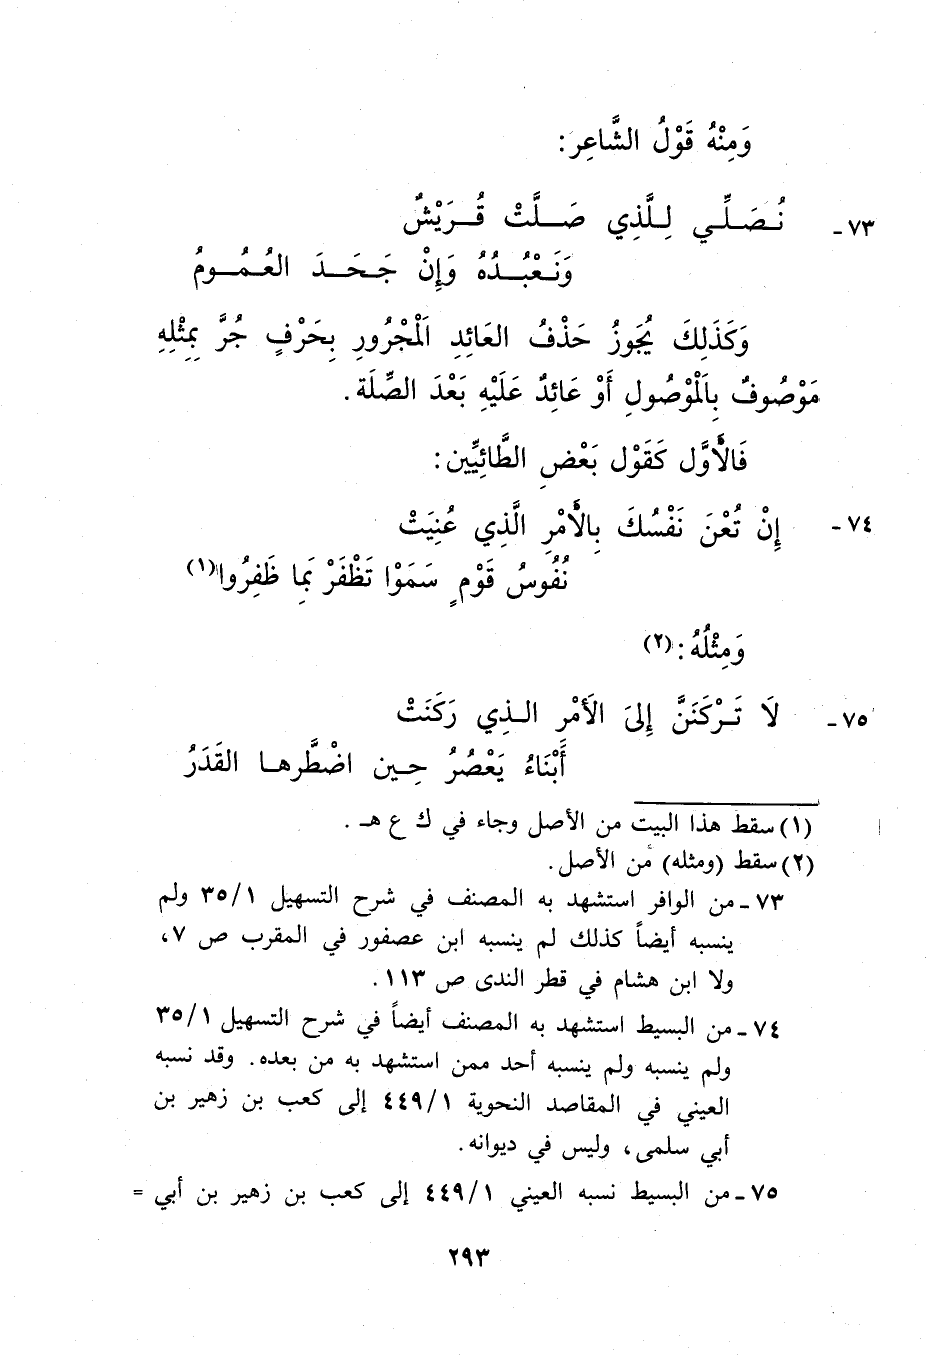 وَمِنْهُ قَوْلُ الشَّاعِرِ:
٧٣- نُصَلِّي لِلَّذِي صَلَّتْ قُرَيْشٌ
وَنَعْبُدُهُ وَإِنْ جَحَدَ العُمُومُ
وَكَذَلِكَ يُجَوزُ حَذْفُ العَائِدِ اَلْمَجْرُورِ بِحَرْفٍ جُرَّ بِمثْلِهِ
مَوْصُوفٌ بِاَلْمَوْصُولِ أَوْ عَائِدٌ عَلَيْهِ بَعْدَ الصِّلَة.
فَالأَوَّل كَقَوْل بَعْضِ الطَّائِيِّين:
٧٤- إِنْ تُعْنَ نَفْسُكَ بِالأَمْرِ الَّذِي عُنِيَتْ
نُفُوسُ قَوْمٍ سَمَوْا تَظْفَرْ بَمِا ظَفِرُوا(١)
وَمِثْلُهُ:(٢)
٧٥- لَا تَرْكَنَنَّ إِلىَ الأَمْرِ الذِي رَكَنَتْ
أَبْنَاءُ يَعْصُرُ حِين اضْطَّرها القَدَرُ
(١) سقط هذا البيت من الأصل وجاء في ك ع هـ.
(٢) سقط (ومثله) من الأصل.
٧٣- من الوافر استشهد به المصنف في شرح التسهيل ٣٥/١ ولم
ينسبه أيضاً كذلك لم ينسبه ابن عصفور في المقرب ص ٧،
ولا ابن هشام في قطر الندى ص ١١٣.
٧٤- من البسيط استشهد به المصنف أيضاً في شرح التسهيل ٣٥/١
ولم ينسبه ولم ينسبه أحد ممن استشهد به من بعده. وقد نسبه
العيني في المقاصد النحوية ٤٤٩/١ إلى كعب بن زهير بن
أبي سلمى، وليس في ديوانه.
٧٥- من البسيط نسبه العيني ٤٤٩/١ إلى كعب بن زهير بن أبي =
٢٩٣